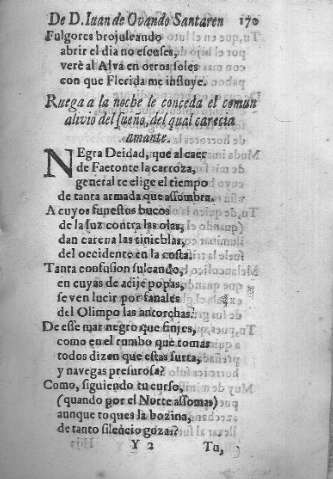 De D. Iuan de Ovando Santaren 170
Fulgores brojuleando
abrir el dia no escuses,
verè al Alva en otros soles
con que Flerida me influye.
Ruega a la noche le conceda el comun
alivio del sueño, del qual carecia
amante.
NEgra Deidad, que al caer
de Faetonte la carroza,
general te elige el tiempo
de tanta armada que assombra.
A cuyos funestos bucos
de la luz contra las olas,
dan carena las tinieblas,
del occidente en la costa.
Tanta confusion sulcando,
en cuyas de acije popas,
se ven lucir por fanales
del Olimpo las antorchas.
De esse mar negro que finjes,
como en el rumbo que tomas
todos dizen que estas surta,
y navegas presurosa?
Como, siguiendo tu curso,
(quando por el Norte assomas)
aunque toques la bozina,
de tanto silencio gozas?
Y 2 Tu,